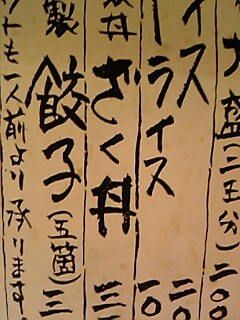 大盛(三玉分)二〇〇
イス 二〇
ーライス 一〇
丼 ざく丼 三
製 餃子(五箇)三
ットも一人前より承ります